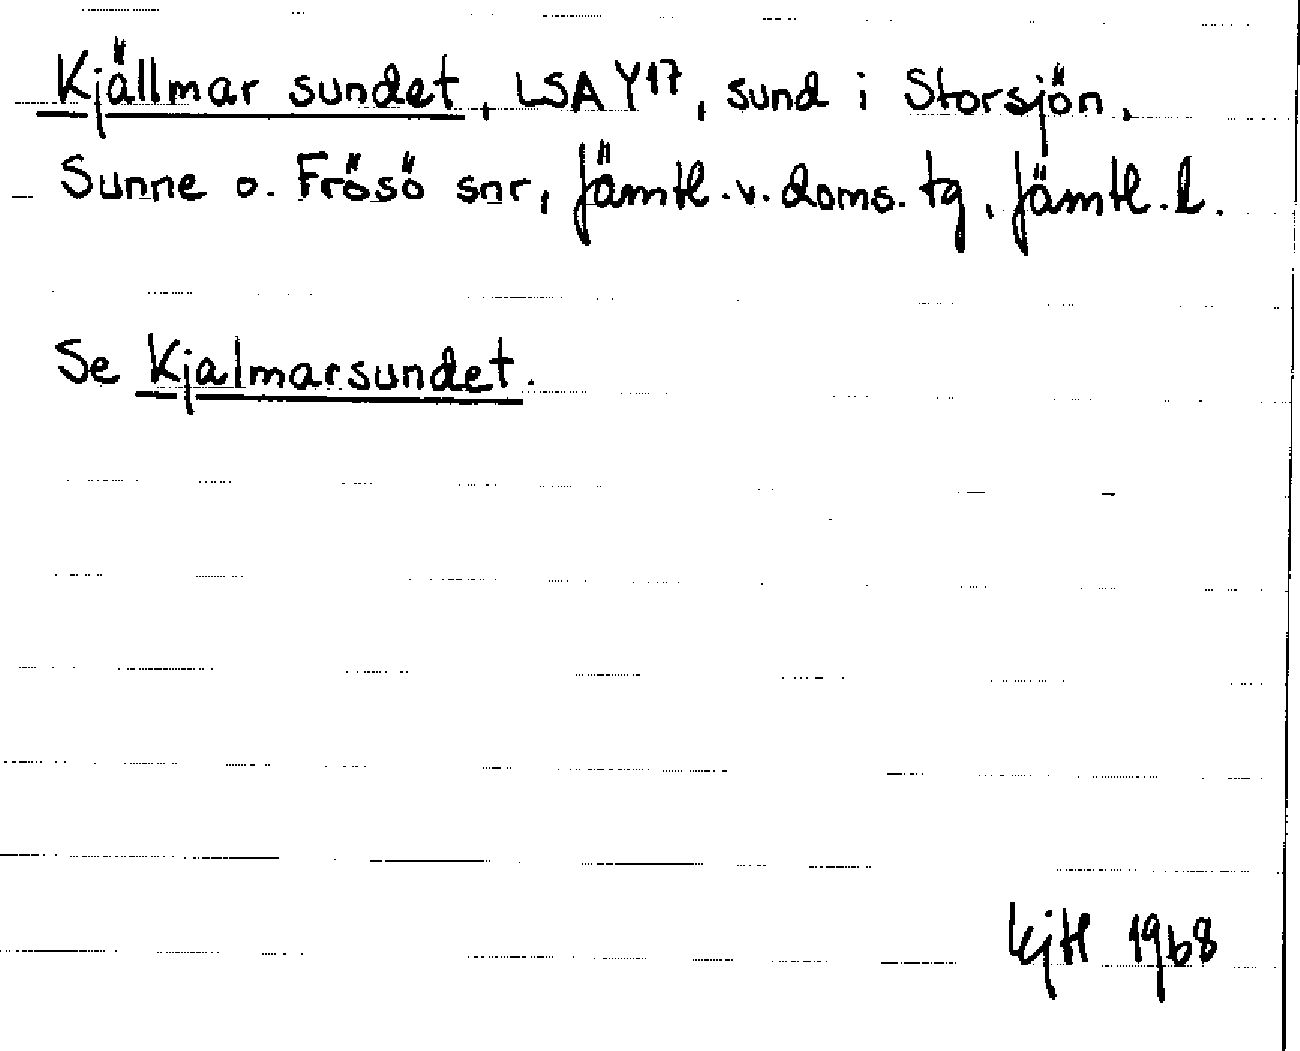 Kjällmar sundet, LSA Y17, sund i Storsjön,
Sunne o. Frösö snr, Jämtl.v.doms.tg, Jämtl.l.
Se Kjalmarsundet.
kjtl 1968